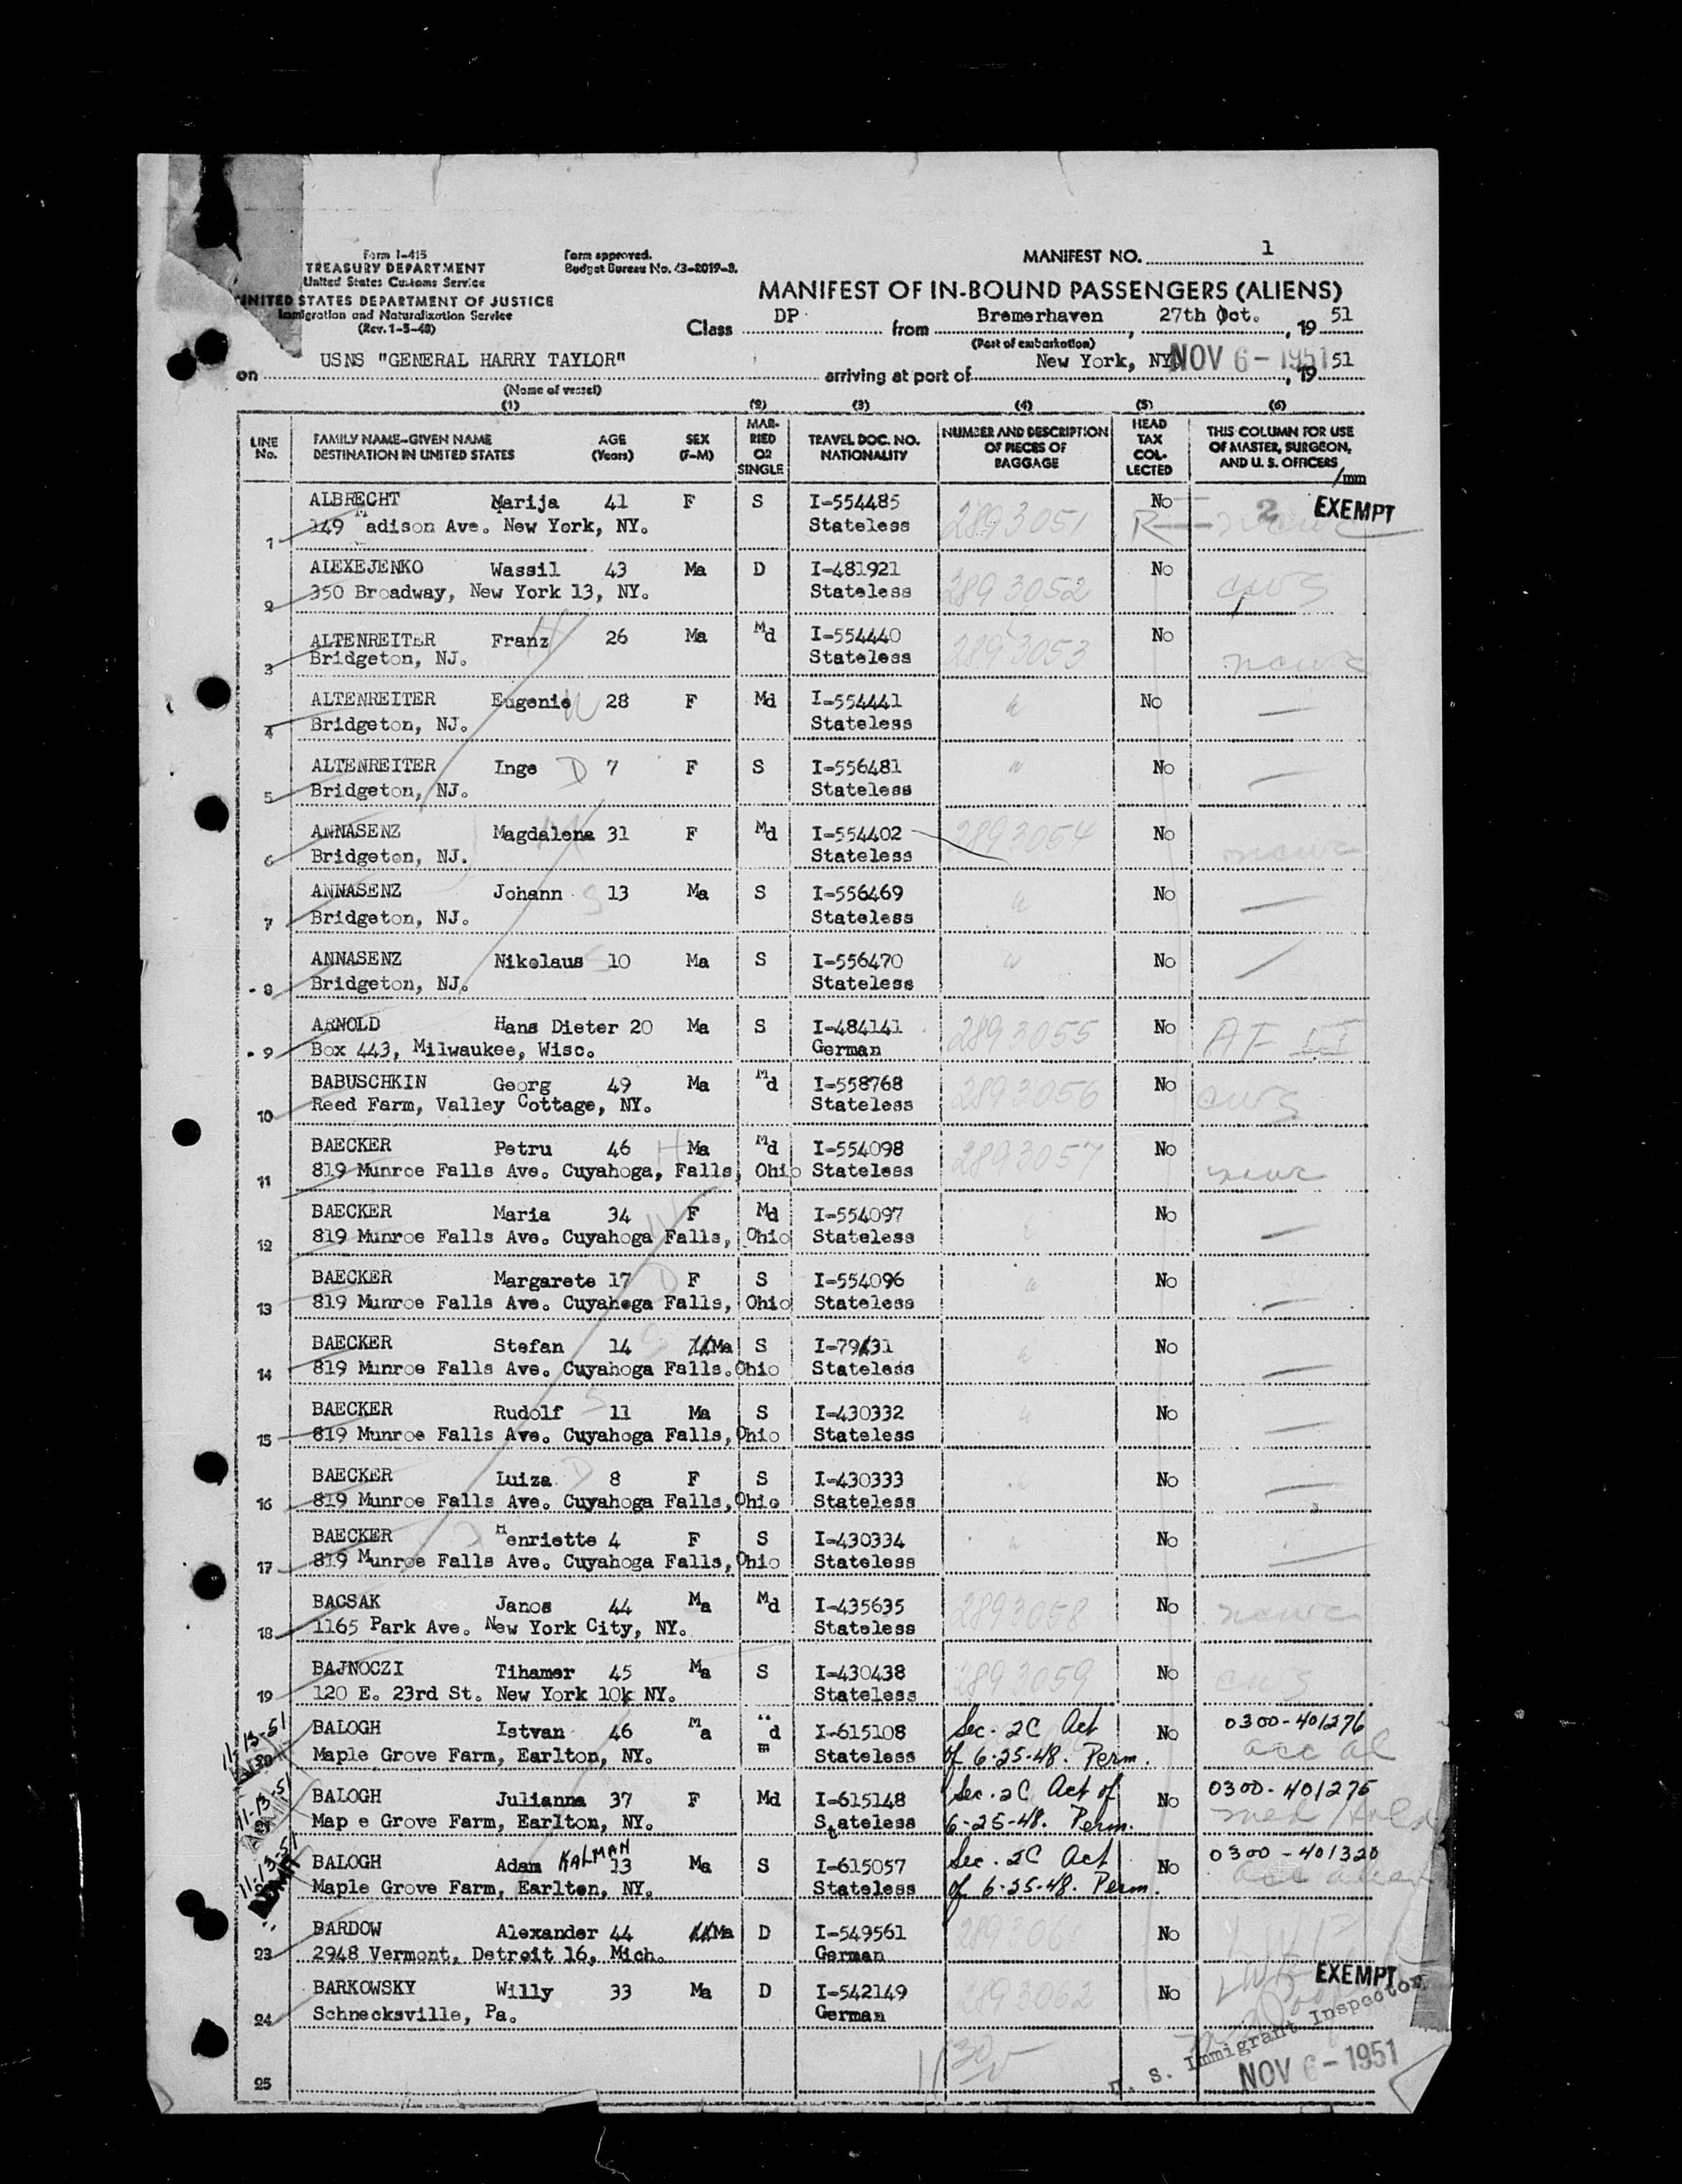 Form I-415
TREASURY DEPARTMENT
United States Customs Service
UNITED STATES DEPARTMENT OF JUSTICE
Immigration and Naturalization Service
(Rev. 1-5-48)
Form approved.
Budget Bureau No. 43-R019-3.
MANIFEST NO. 1
MANIFEST OF IN-BOUND PASSENGERS (ALIENS)
Class DP from Bremerhaven, 27th Oct., 19 51
(Port of embarkation)
on USNS "GENERAL HARRY TAYLOR" arriving at port of New York, NY NOV 6 - 1951, 19 51
(Name of vessel)
(1) (2) (3) (4) (5) (6)
LINE No. FAMILY NAME-GIVEN NAME DESTINATION IN UNITED STATES AGE (Years) SEX (F-M) MARRIED OR SINGLE TRAVEL DOC. NO. NATIONALITY NUMBER AND DESCRIPTION OF PIECES OF BAGGAGE HEAD TAX COLLECTED THIS COLUMN FOR USE OF MASTER, SURGEON, AND U. S. OFFICERS /mm
ALBRECHT Marija 41 F S I-554485 2893051 No 2 EXEMPT
1 149 Madison Ave. New York, NY. Stateless R ncwc
ALEXEJENKO Wassil 43 Ma D I-481921 2893052 No cws
2 350 Broadway, New York 13, NY. Stateless
ALTENREITER Franz H 26 Ma Md I-554440 2893053 No ncwc
3 Bridgeton, NJ. Stateless
ALTENREITER Eugenie W 28 F Md I-554441 " No —
4 Bridgeton, NJ. Stateless
ALTENREITER Inge D 7 F S I-556481 " No —
5 Bridgeton, NJ. Stateless
ANNASENZ Magdalena 31 F Md I-554402 2893054 No ncwc
6 Bridgeton, NJ. Stateless
ANNASENZ Johann S 13 Ma S I-556469 " No —
7 Bridgeton, NJ. Stateless
ANNASENZ Nikolaus S 10 Ma S I-556470 " No
8 Bridgeton, NJ. Stateless
ARNOLD Hans Dieter 20 Ma S I-484141 2893055 No AF II
9 Box 443, Milwaukee, Wisc. German
BABUSCHKIN Georg 49 Ma Md I-558768 2893056 No cws
10 Reed Farm, Valley Cottage, NY. Stateless
BAECKER Petru 46 H Ma Md I-554098 2893057 No ncwc
11 819 Munroe Falls Ave. Cuyahoga, Falls, Ohio Stateless
BAECKER Maria 34 W F Md I-554097 " No —
12 819 Munroe Falls Ave. Cuyahoga Falls, Ohio Stateless
BAECKER Margarete 17 D F S I-554096 " No —
13 819 Munroe Falls Ave. Cuyahoga Falls, Ohio Stateless
BAECKER Stefan 14 S Ma S I-79631 " No —
14 819 Munroe Falls Ave. Cuyahoga Falls. Ohio Stateless
BAECKER Rudolf S 11 Ma S I-430332 " No —
15 819 Munroe Falls Ave. Cuyahoga Falls, Ohio Stateless
BAECKER Luiza D 8 F S I-430333 " No —
16 819 Munroe Falls Ave. Cuyahoga Falls, Ohio Stateless
BAECKER Henriette 4 F S I-430334 " No —
17 819 Munroe Falls Ave. Cuyahoga Falls, Ohio Stateless
BACSAK Janos 44 Ma Md I-435635 2893058 No ncwc
18 1165 Park Ave. New York City, NY. Stateless
BAJNOCZI Tihamer 45 Ma S I-430438 2893059 No cws
19 120 E. 23rd St. New York 10k NY. Stateless
11-13-51 BALOGH Istvan 46 Ma d m I-615108 Sec. 2C Act No 0300-401276
20 Maple Grove Farm, Earlton, NY. Stateless of 6-25-48. Perm. acc al
11-13-51 BALOGH Julianna 37 F Md I-615148 Sec. 2C Act of No 0300-401275
Map e Grove Farm, Earlton, NY. Stateless 6-25-48. Perm. med Hold
11-13-51 BALOGH Adam KALMAN 13 Ma S I-615057 Sec. 2C Act No 0300-401320
ADMIT Maple Grove Farm, Earlton, NY. Stateless of 6-25-48. Perm. acc alien
BARDOW Alexander 44 Ma D I-549561 289306 No LWF
23 2948 Vermont, Detroit 16, Mich. German
BARKOWSKY Willy 33 Ma D I-542149 2893062 No LWF EXEMPT
24 Schnecksville, Pa. German
U. S. Immigrant Inspector.
NOV 6 - 1951
25